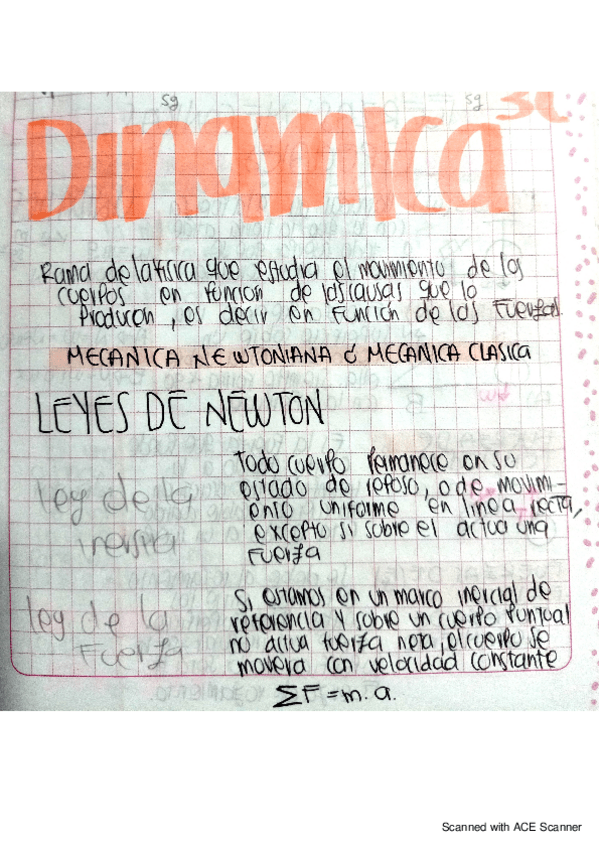 sg sg
DInamIca
Rama de la fisica que estudia el movimiento de los
cuerpos en funcion de las causas que lo
Producen, es decir en funcion de las Fuerzas.
MECANICA NEWTONIANA ó MECANICA CLASICA
LEYES DE NEWTON
Todo cuerpo Permanece en su
estado de reposo, o de movimi-
ento uniforme en linea recta,
excepto si sobre el actua una
Fuerza
ley de la
inersia
Si estamos en un marco inercial de
referencia y sobre un cuerpo Puntual
no actua fuerza neta, el cuerpo se
movera con velocidad constante
ley de la
Fuerza
ΣF = m.a.
Scanned with ACE Scanner